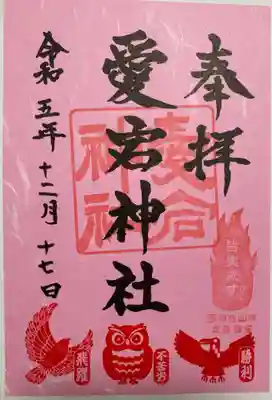 奉拝
愛宕神社
令和五年十二月十七日
飛躍
不苦労
勝利